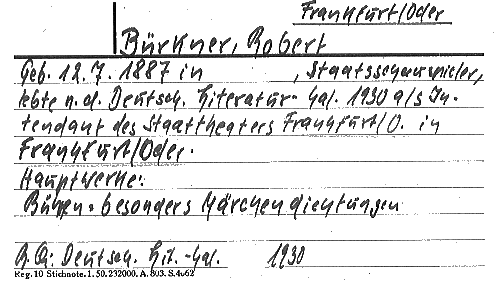 Frankfurt/Oder
Bürkner, Robert
Geb. 12.7.1887 in , Staatsschauspieler,
lebte n. d. Deutsch. Literatur-Kal. 1930 als In-
tendant des Stadttheaters Frankfurt/O. in
Frankfurt/Oder.
Hauptwerke:
Bühnen- besonders Märchendichtungen
Deutsch. Lit.-Kal. 1930
Reg. 10 Stichnote. 1. 50. 232000. A. 803. S. 4062